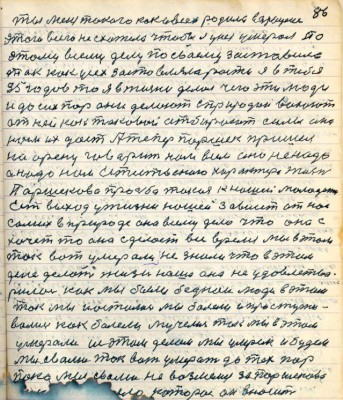 86
ты меня такого как всех родила в
этого всего не схотел чтобы я умел умерал По
этому всему делу по своему заставила
так как усех заставила расти я в тебя
35 годов то я в жизни делал чего эти люди
и до сих пор они делают с природою воюют
от ней как таковой отбирают силы она
ном их дает А теперь Паршек пришел
на арену говорит нам всем оно не надо
а надо нам Естественного характера жить
Паршекова просьба такая к нашей молодежи
Есть выход у жизни нашей зависит от нас
самих в природе она всему дело что она с
хочет то она сделает все время мы в этом
так вот умерали не знали что в этом
деле делать жизнь наша она не удовлетво-
рилась как мы были бедном люди в этом
так мы мы болели и простужи-
вались как болели мучились так мы в этом
умерали и этим делом мы умрем и будем
мы сваи так вот умерать до тех пар
пока мы сваи не возмемся за Паршеково
которое он вносит